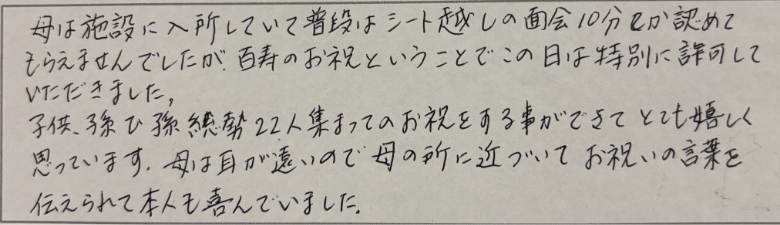 母は施設に入所していて普段はシート越しの面会10分しか認めて
もらえませんでしたが、百寿のお祝ということでこの日は特別に許可して
いただきました。
子供、孫ひ孫総勢22人集まってのお祝をする事ができてとても嬉しく
思っています。母は耳が遠いので母の所に近づいてお祝いの言葉を
伝えられて本人も喜んでいました。